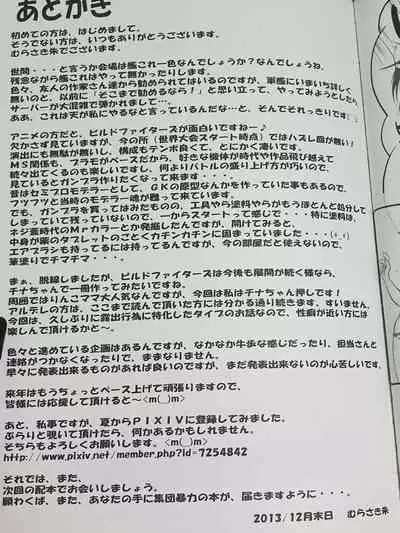 あとがき
初めての方は、はじめまして。
そうでない方は、いつもありがとうございます。
むらさき朱でございます。
世間・・・と言うか会場は艦これ一色なんでしょうか？なんでしょうね。
残念ながら艦これはやって無かったりします。
色々、友人の作家さん達から勧められてはいるのですが、軍艦にいまいち詳しく
無いのと、以前に「そこまで勧めるなら！」と思い立って、やってみようとしたら
サーバーが大混雑で弾かれまして・・・。
ああ、これは天が私にやるなと言っているんだな～と、そんでそれっきりです；
アニメの方だと、ビルドファイターズが面白いですね～♪
欠かさず見ていますが、今の所（世界大会スタート時点）ではハズレ回が無い！
演出にも無駄が無いし、構成もテンポ良くて、とにかく凄いです。
MS関係も、プラモがベースだから、好きな機体が時代や作品飛び越えて
続々出てくるのも楽しいですし、何よりバトルの盛り上げ方が巧いので、
見ているとガンプラ作りたくなって来ます・・・。
昔はセミプロモデラーとして、GKの原型なんかを作っていた事もあるので、
フツフツと当時のモデラー魂が甦って来ています。
でも、ガンプラを買ってはみたものの、工具やら塗料やらがもうほとんど処分して
しまっていて残っていないので、一からスタートって感じで・・・特に塗料は、
ネジ蓋時代のMrカラーとか発掘したんですが、開けてみると、
中身が薬のタブレットのごとくカチンカチンに固まっていました・・・
エアブラシも持ってるには持ってるんですが、今の部屋だと使えないので、
筆塗りでチマチマ・・・。
まぁ、脱線しましたが、ビルドファイターズは今後も展開が続く様なら、
チナちゃんで一冊作ってみたいですね。
周囲ではりんこママ大人気なんですが、今回は私はチナちゃん押しです！
アルデレの方は、ここまで読んで頂いた方には分かる通り続きます、すいません。
今回は、久しぶりに露出行為に特化したタイプのお話なので、性癖が近い方には
楽しんで頂けるかと～。
色々と進めている企画はあるんですが、なかなか牛歩な感じだったり、担当さんと
連絡がつかなくなったりで、ままなりません。
早々に発表出来るものがあれば良いのですが、まだ発表出来ないのが心苦しいです。
来年はもうちょっとペース上げて頑張りますので、
皆様には応援して頂けると～<m(__)m>
あと、私事ですが、夏からPIXIVに登録してみました。
ぶらりと覗いて頂けたら、何かあるかもしれません。
そちらもよろしくお願いします。<m(__)m>
http://www.pixiv.net/member.php?id=7254842
それでは、また、
次回の配本でお会いしましょう。
願わくば、また、あなたの手に集団暴力の本が、届きますように・・・。
2013/12月末日　むらさき朱